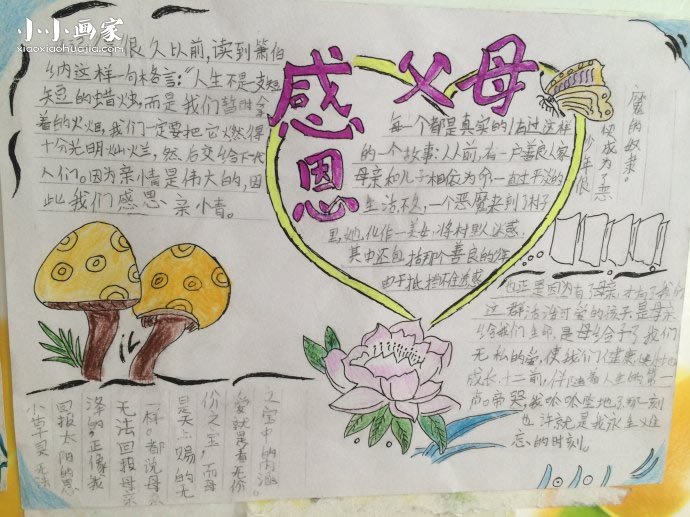 小小画家
xiaoxiaohuajia.com
感恩
父母
很久以前,读到萧伯
纳这样一句格言:“人生不是支短
短的蜡烛,而是我们暂时拿
着的火炬,我们一定要把它燃得
十分光明灿烂,然后交给下一代
人们。因为亲情是伟大的,因
此我们感恩亲情。
每一个都是真实的
的一个故事:从前,有一户善良人家,
母亲和儿子相依为命一直过
生活不久,一个恶魔来到了村子
里,她化作一美女,将村
其中还包括那个善良的
由于抵挡不住诱惑
魔的奴隶。
使成为了恶
少年很
也正是因为有了母亲,才有了我们
这群活泼可爱的孩子,是母亲
给我们生命,是母给予了我们
无私的爱,使我们健康
成长,十二前,伴随着人生的第一
声啼哭,我呱呱坠地,
也许就是我永生难
忘的时刻。
之宝中的内涵
爱就是看无价
价之宝,而母
是天上赐的无
一样。都说母
无法回报母亲
泽的,正像我
回报太阳的恩
小草
无法